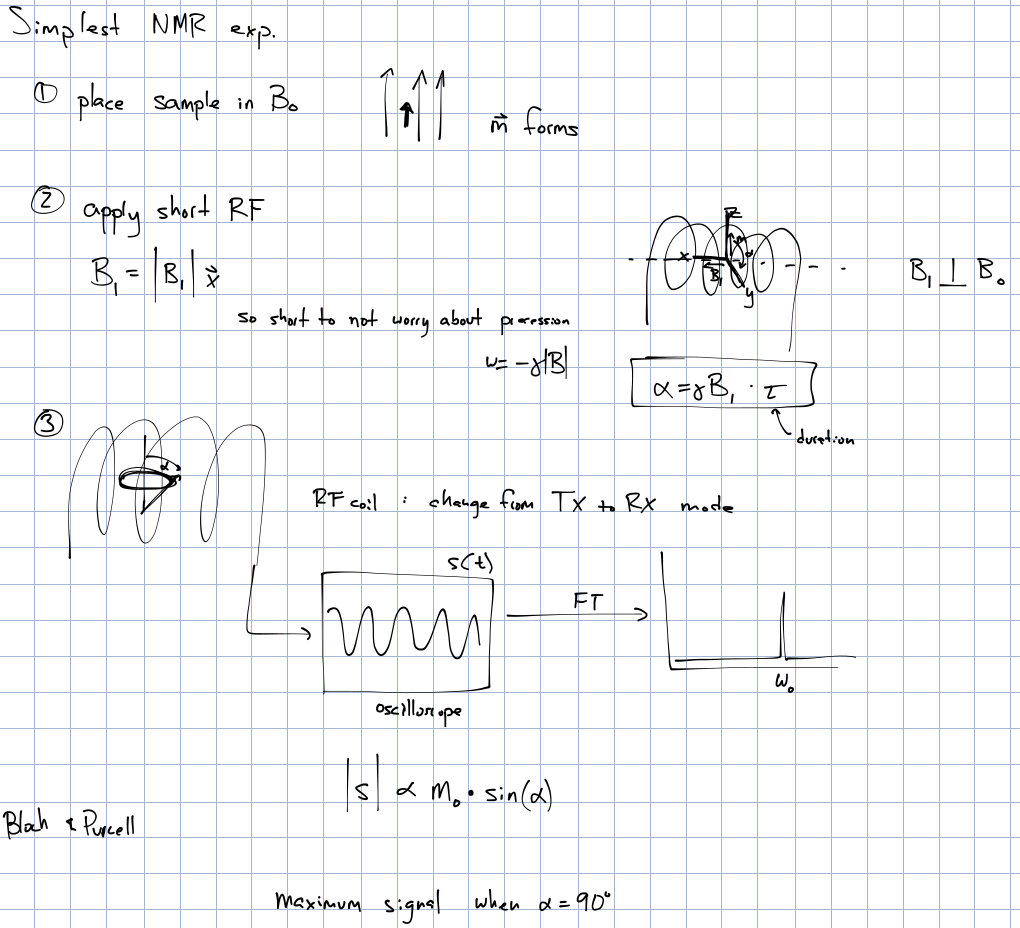 Simplest NMR exp.
① place sample in B₀
m⃗ forms
② apply short RF
B₁ = |B₁| x⃗
z
x
B₁
α
y
B₁ ⊥ B₀
so short to not worry about precession
ω = -γ|B|
α = γB₁ · τ
duration
③
α
RF coil : change from TX to RX mode
s(t)
FT
ω₀
oscilloscope
|s| ∝ m₀ · sin(α)
Bloch & Purcell
maximum signal when α = 90°